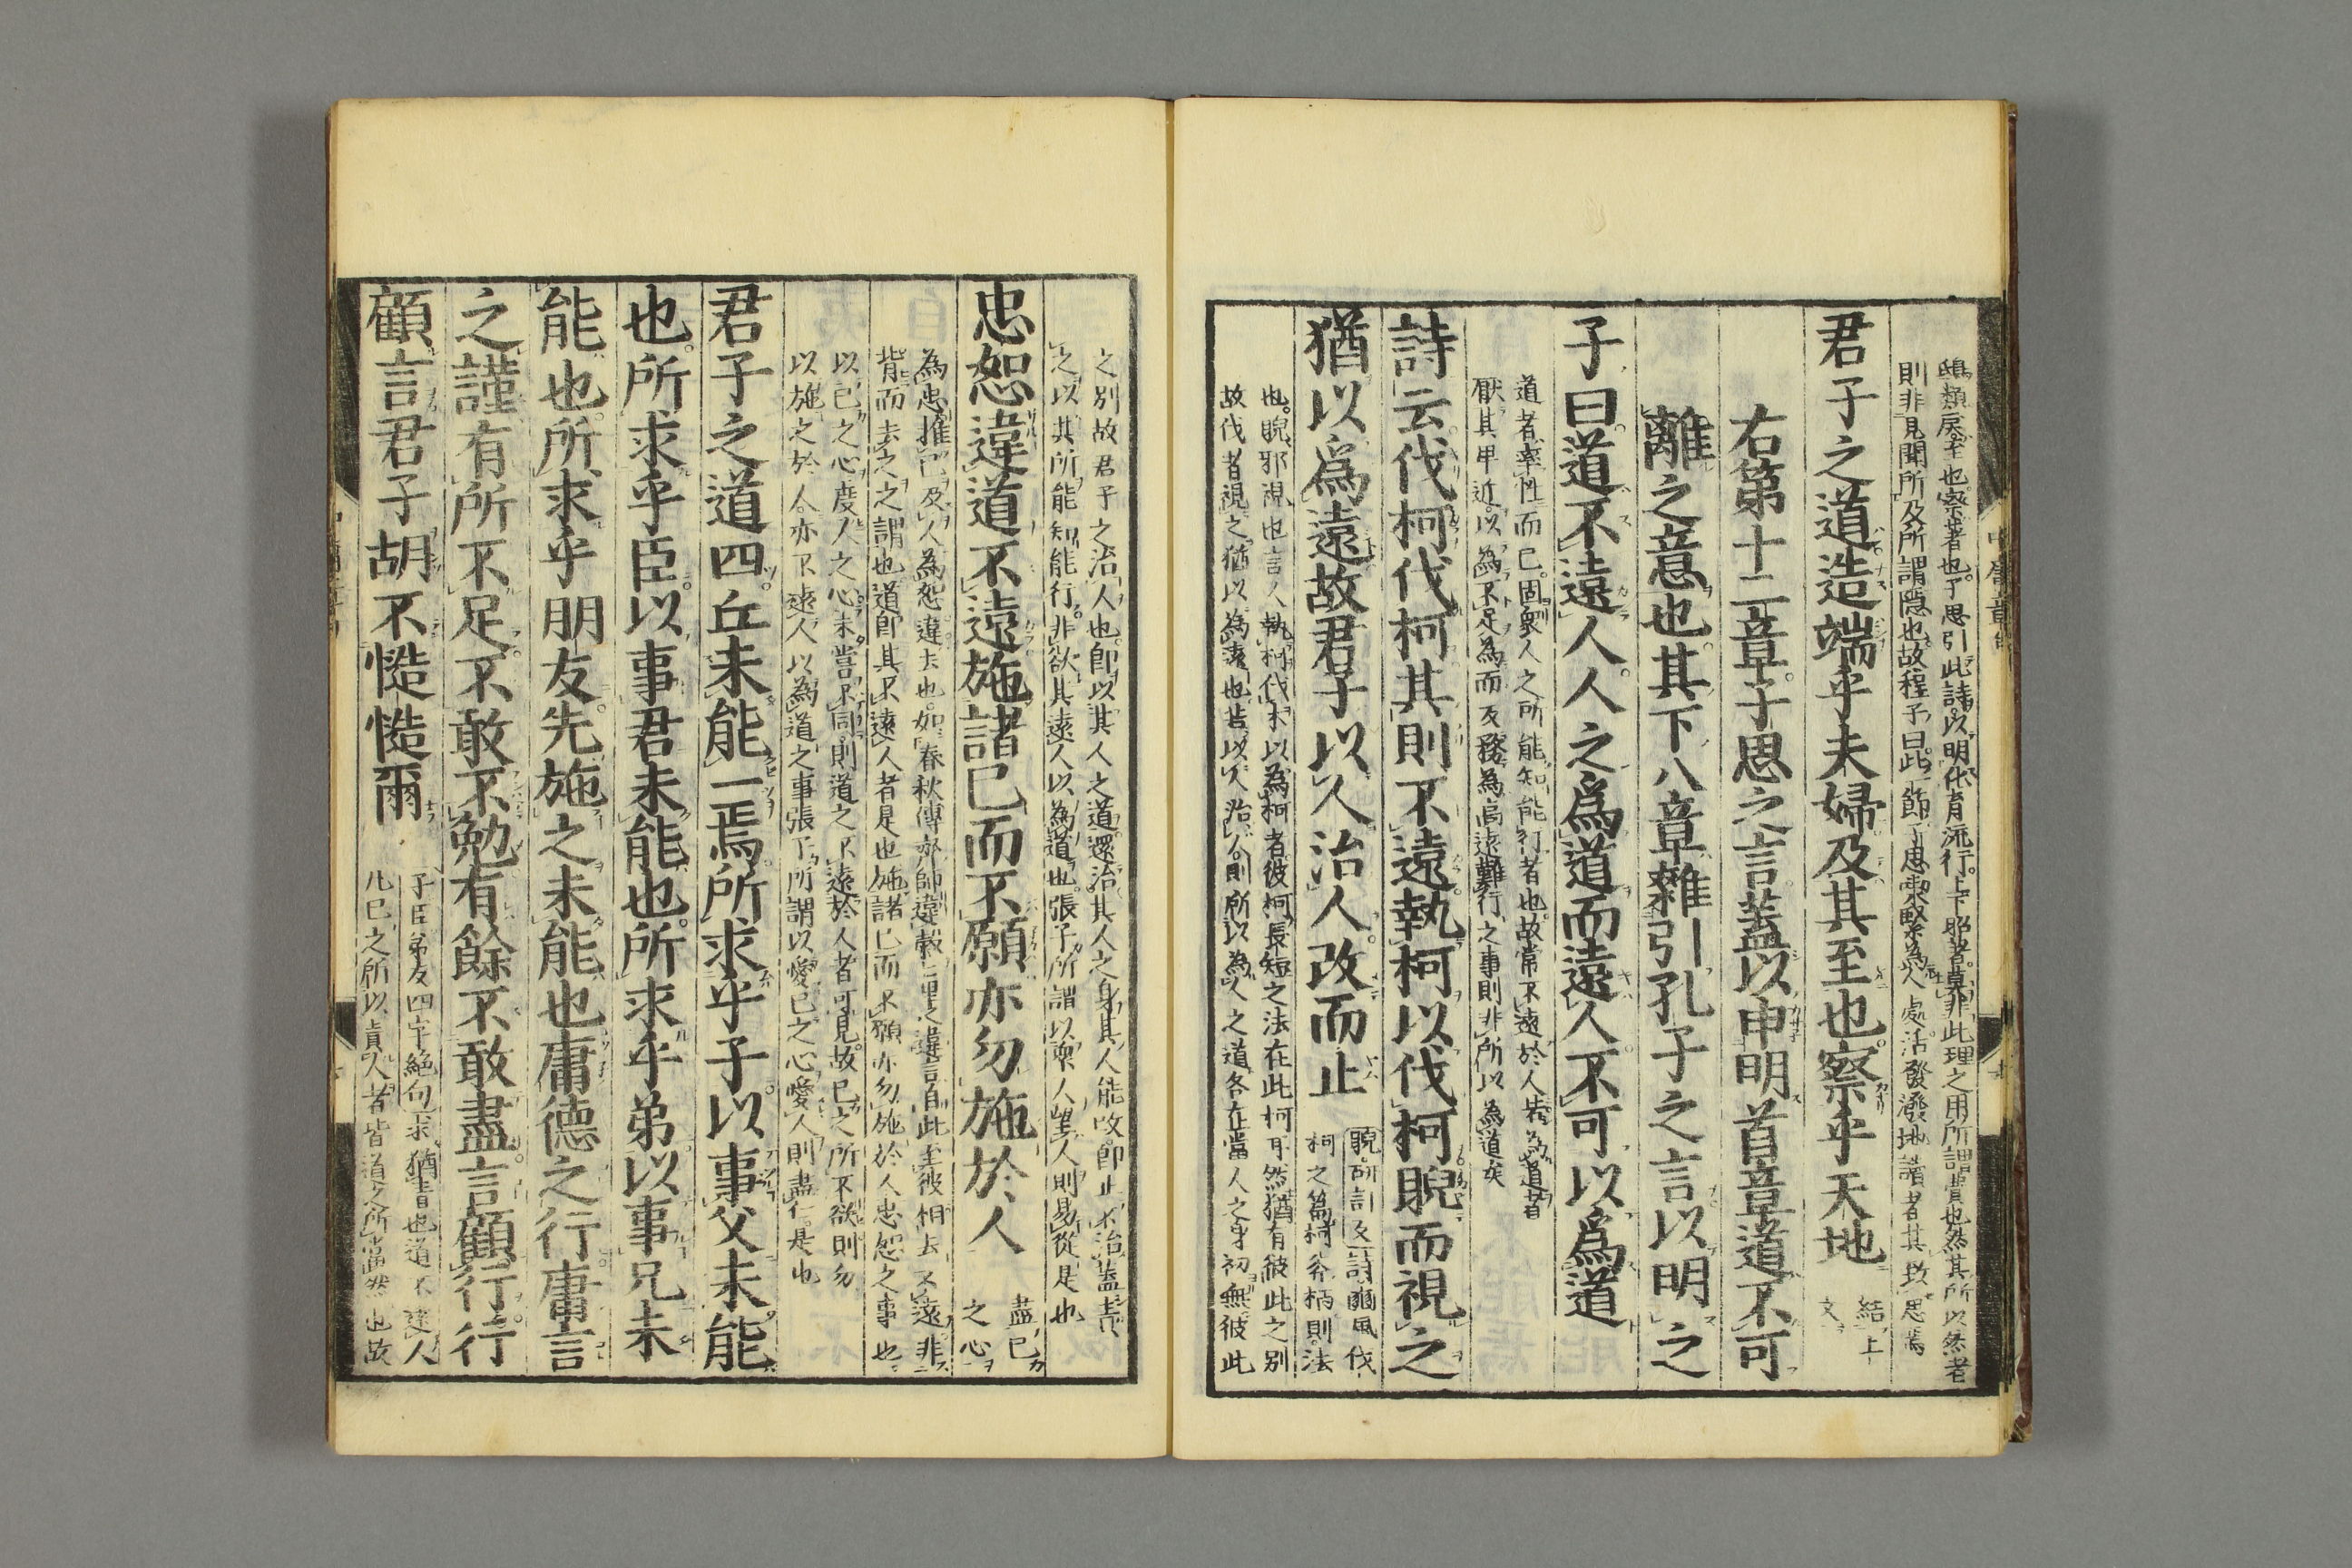 鴟類戾至也察著也子思引此詩以明化育流行上下昭著莫非此理之用所謂費也然其所以然者
則非見聞所及所謂隱也故程子曰此一節子思喫緊為人處活潑潑地讀者其致思焉
君子之道造端乎夫婦及其至也察乎天地
結上
文
右第十二章子思之言蓋以申明首章道不可
離之意也其下八章雜引孔子之言以明之
子曰道不遠人人之爲道而遠人不可以爲道
道者率性而已固衆人之所能知能行者也故常不遠於人若為道者
厭其卑近以為不足為而反務為高遠難行之事則非所以為道矣
詩云伐柯伐柯其則不遠執柯以伐柯睨而視之
猶以爲遠故君子以人治人改而止
睨研計反詩豳風伐
柯之篇柯斧柄則法
也睨邪視也言人執柯伐木以為柯者彼柯長短之法在此柯耳然猶有彼此之別
故伐者視之猶以為遠也若以人治人則所以為人之道各在當人之身初無彼此
之別故君子之治人也卽以其人之道還治其人之身其人能改卽止不治蓋責
之以其所能知能行非欲其遠人以為道也張子所謂以衆人望人則易從是也
忠恕違道不遠施諸己而不願亦勿施於人
盡己
之心
為忠推己及人為恕違去也如春秋傳齊師違穀七里之違言自此至彼相去不遠非
背而去之之謂也道卽其不遠人者是也施諸己而不願亦勿施於人忠恕之事也
以己之心度人之心未嘗不同則道之不遠於人者可見故己之所不欲則勿
以施之於人亦不遠人以為道之事張子所謂以愛己之心愛人則盡仁是也
君子之道四丘未能一焉所求乎子以事父未能
也所求乎臣以事君未能也所求乎弟以事兄未
能也所求乎朋友先施之未能也庸德之行庸言
之謹有所不足不敢不勉有餘不敢盡言顧行行
顧言君子胡不慥慥爾
子臣弟友四字絕句求猶責也道不遠人
凡己之所以責人者皆道之所當然也故